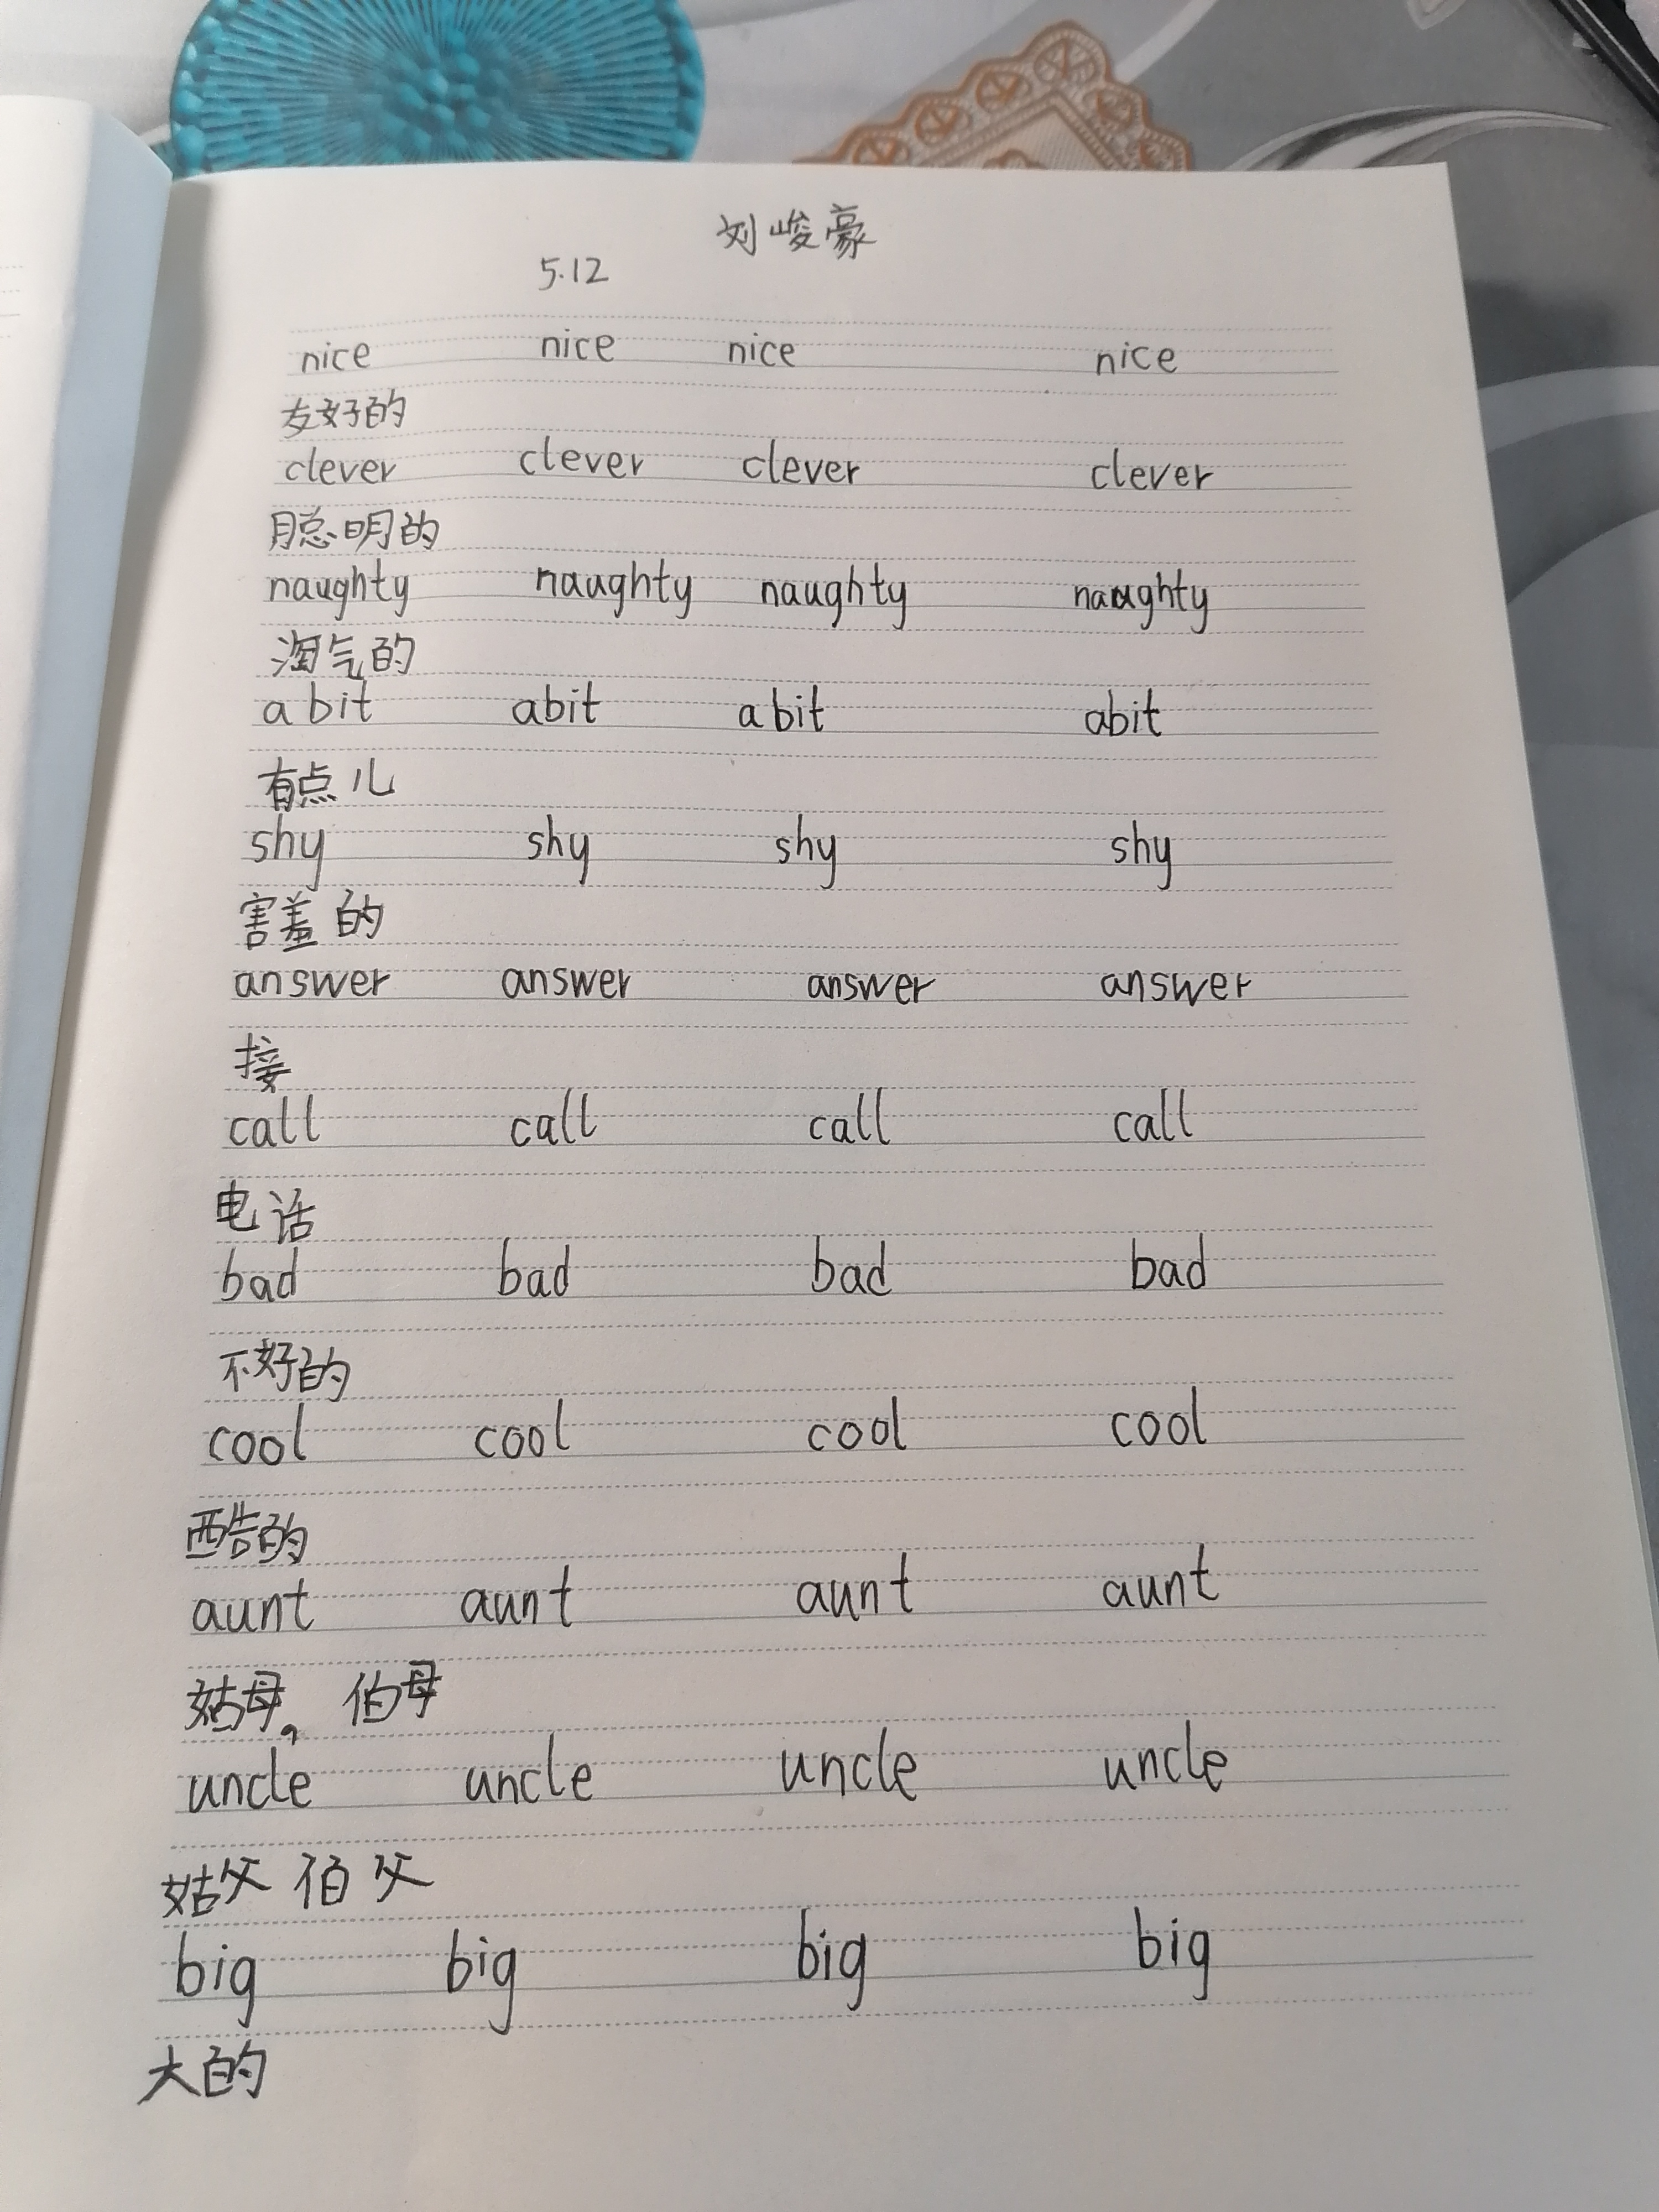 刘峻豪
5.12
nice nice nice nice
友好的
clever clever clever clever
聪明的
naughty naughty naughty naughty
淘气的
a bit abit a bit abit
有点儿
shy shy shy shy
害羞的
answer answer answer answer
接
call call call call
电话
bad bad bad bad
不好的
cool cool cool cool
酷的
aunt aunt aunt aunt
姑母, 伯母
uncle uncle uncle uncle
姑父 伯父
big big big big
大的